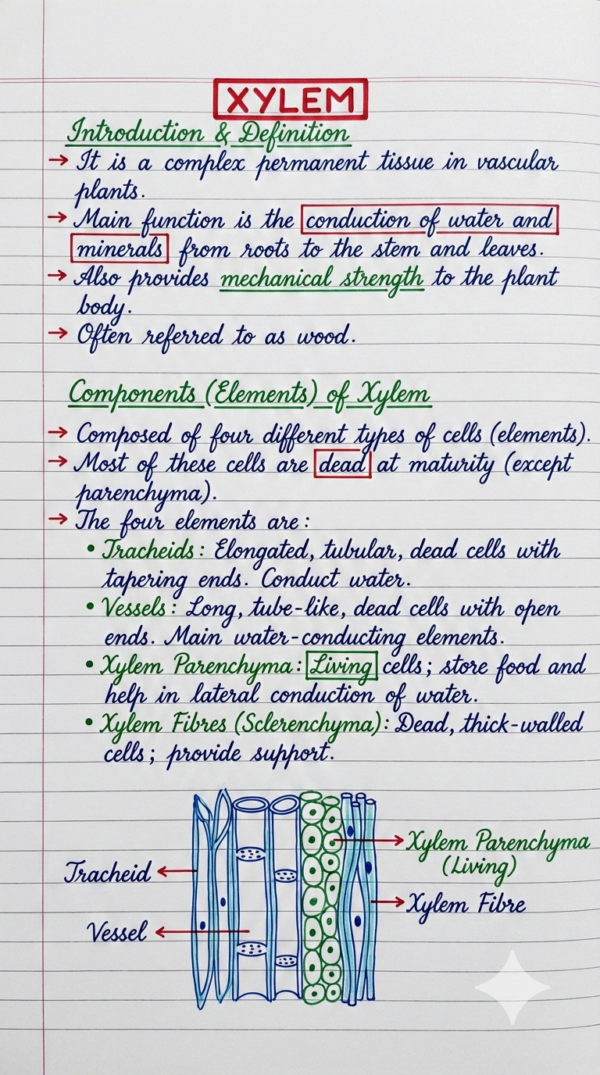 XYLEM
Introduction & Definition
→ It is a complex permanent tissue in vascular
plants.
→ Main function is the conduction of water and
minerals from roots to the stem and leaves.
→ Also provides mechanical strength to the plant
body.
→ Often referred to as wood.
Components (Elements) of Xylem
→ Composed of four different types of cells (elements).
→ Most of these cells are dead at maturity (except
parenchyma).
→ The four elements are:
• Tracheids: Elongated, tubular, dead cells with
tapering ends. Conduct water.
• Vessels: Long, tube-like, dead cells with open
ends. Main water-conducting elements.
• Xylem Parenchyma: Living cells; store food and
help in lateral conduction of water.
• Xylem Fibres (Sclerenchyma): Dead, thick-walled
cells; provide support.
Tracheid
Vessel
Xylem Parenchyma
(Living)
Xylem Fibre